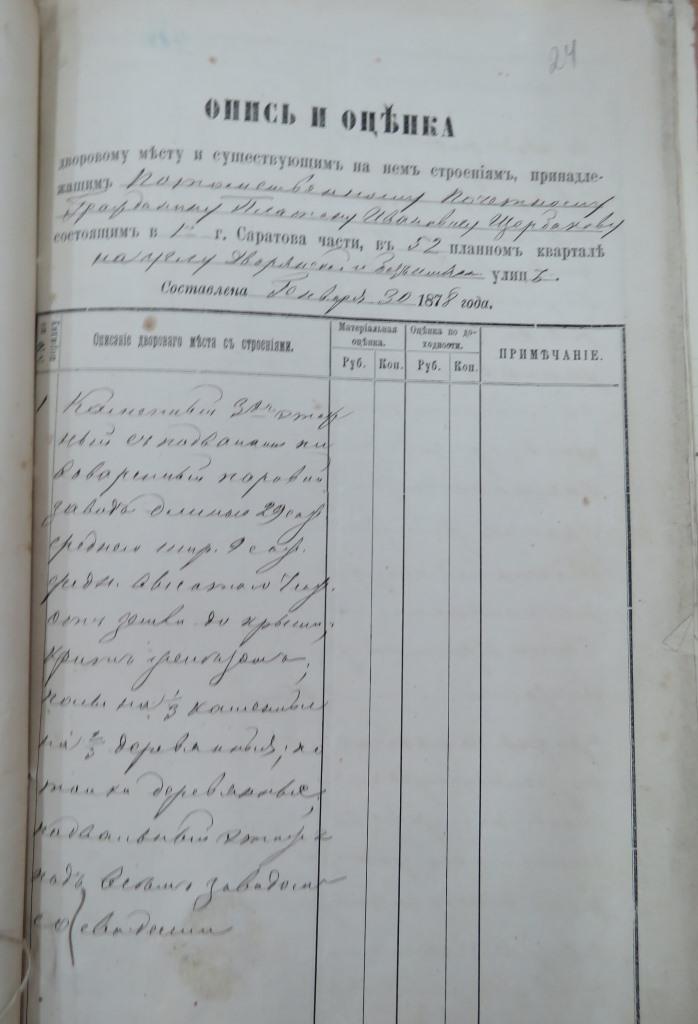 24
ОПИСЬ И ОЦѢНКА
дворовому мѣсту и существующимъ на немъ строеніямъ, принадле-
жащимъ Потомственному Почетному
Гражданину Платону Ивановичу Щербакову
состоящимъ в 1й г. Саратова части, въ 52 планном кварталѣ
на углу Дворянской и улицъ.
Составлена Января 30 1878 года.
Описаніе дворового мѣста съ строеніями.
Матеріальная оцѣнка.
Руб. Коп.
Оцѣнка по до-
ходности.
Руб. Коп.
ПРИМѢЧАНІЕ.
1 Каменный 3хъ этаж
ный съ подвалами пи
воваренный паровой
заводъ длиною 29 саж.
среднею шир. 9 саж.
средн. высотою 7 саж.
отъ земли до крыши;
крытъ желѣзомъ;
полы на 1/3 каменные
на 2/3 деревянные; по
толки деревянные,
подвальный этажъ
подъ всемъ заводомъ
со сводами